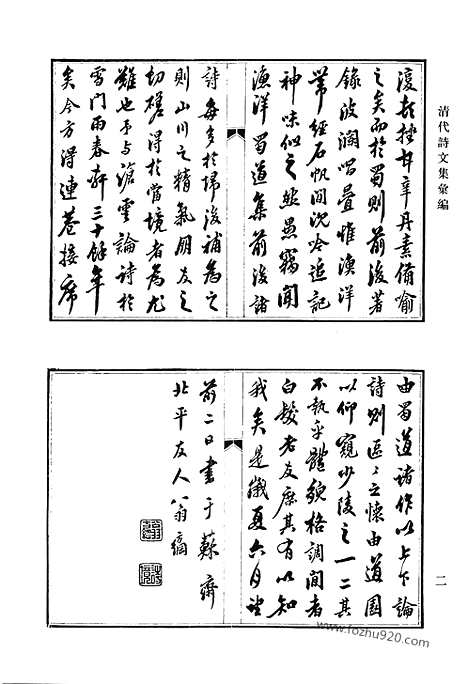 清代詩文集彙編
甘辛丹素備喻
之矣而於蜀則前後著
錄波瀾唱疊惟漁洋
帶經石帆間沈冷追記
神味似之然愚竊聞
漁洋蜀道集前後諸
詩每多於歸後補為之
則山川之精氣朋友之
切磋得於當境者為尤
難也予與滄雲論詩於
雪門雨春軒三十餘年
矣今方得連巷接席
由蜀道諸作以上下論
詩則區〻之懷由道園
以仰窺少陵之一二其
不執乎體貌格調間者
白髮老友庶其有以知
我矣是歲夏六月望
前二日書于蘇齋
北平友人翁
二
www.fozhu920.com